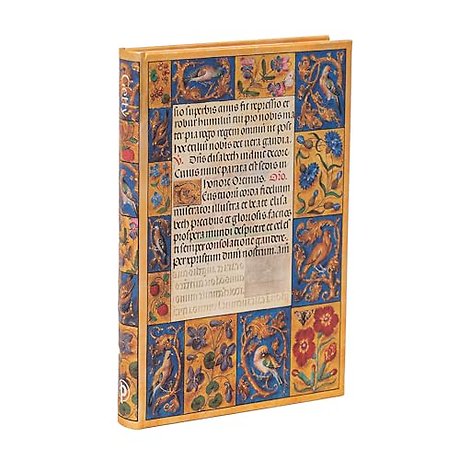 Getty
sio superbis cuius fit repressio et
robur humiliū tu pro nobis ma
ter pia rogo regem omniū ut post
hoc exiliū nobis det vera gaudia.
V. Ora elisabeth induit decore
Cuius nunc parata est sedis in
honore Oremus. Oro.
Tuorū corda fidelium
miserator illustra et beate elisa
beth precibus et gloriosis facnos
prospera mundi despicere et celes
ti semper consolatione gaudere.
Per xpristum dnm nostrum. am
P